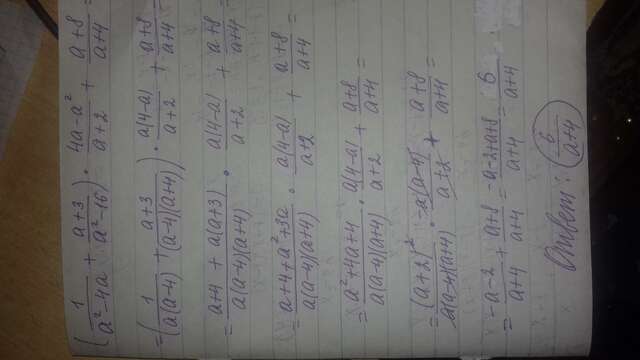 (1/(a²-4a) + (a+3)/(a²-16)) · (4a-a²)/(a+2) + (a+8)/(a+4) =
= (1/(a(a-4)) + (a+3)/((a-4)(a+4))) · a(4-a)/(a+2) + (a+8)/(a+4) =
= (a+4 + a(a+3))/(a(a-4)(a+4)) · a(4-a)/(a+2) + (a+8)/(a+4) =
= (a+4+a²+3a)/(a(a-4)(a+4)) · a(4-a)/(a+2) + (a+8)/(a+4) =
= (a²+4a+4)/(a(a-4)(a+4)) · a(4-a)/(a+2) + (a+8)/(a+4) =
= (a+2)²/(a(a-4)(a+4)) · -a(a-4)/(a+2) + (a+8)/(a+4) =
= (-a-2)/(a+4) + (a+8)/(a+4) = (-a-2+a+8)/(a+4) = 6/(a+4)
Ответ: 6/(a+4)